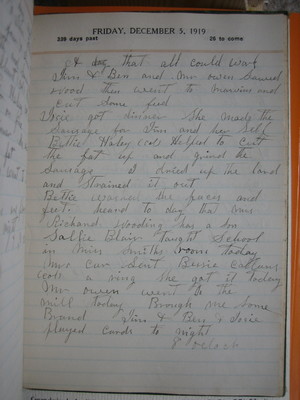 FRIDAY, DECEMBER 5, 1919
339 days past 26 to come
A day that all could work
Jim & Ben and Mr owen Sawed
wood then went to
cut some
Josie got dinner She made the
Sausage for Jim and her Self
Bettie Haley Cole Helped to Cut
the fat up and grind the
Sausage I dried up the land
and Strained it out
Bettie the faces and
feet. heard to day that Mrs
Richard Gooding has a son
Sallie Blair taught School
in Miss Smiths room today
Mrs sent Bessie
Cole a ring She got it today
Mr owen went to the
mill today Brough me some
Brand Jim & Ben & Josie
played cards to night
8 oclock